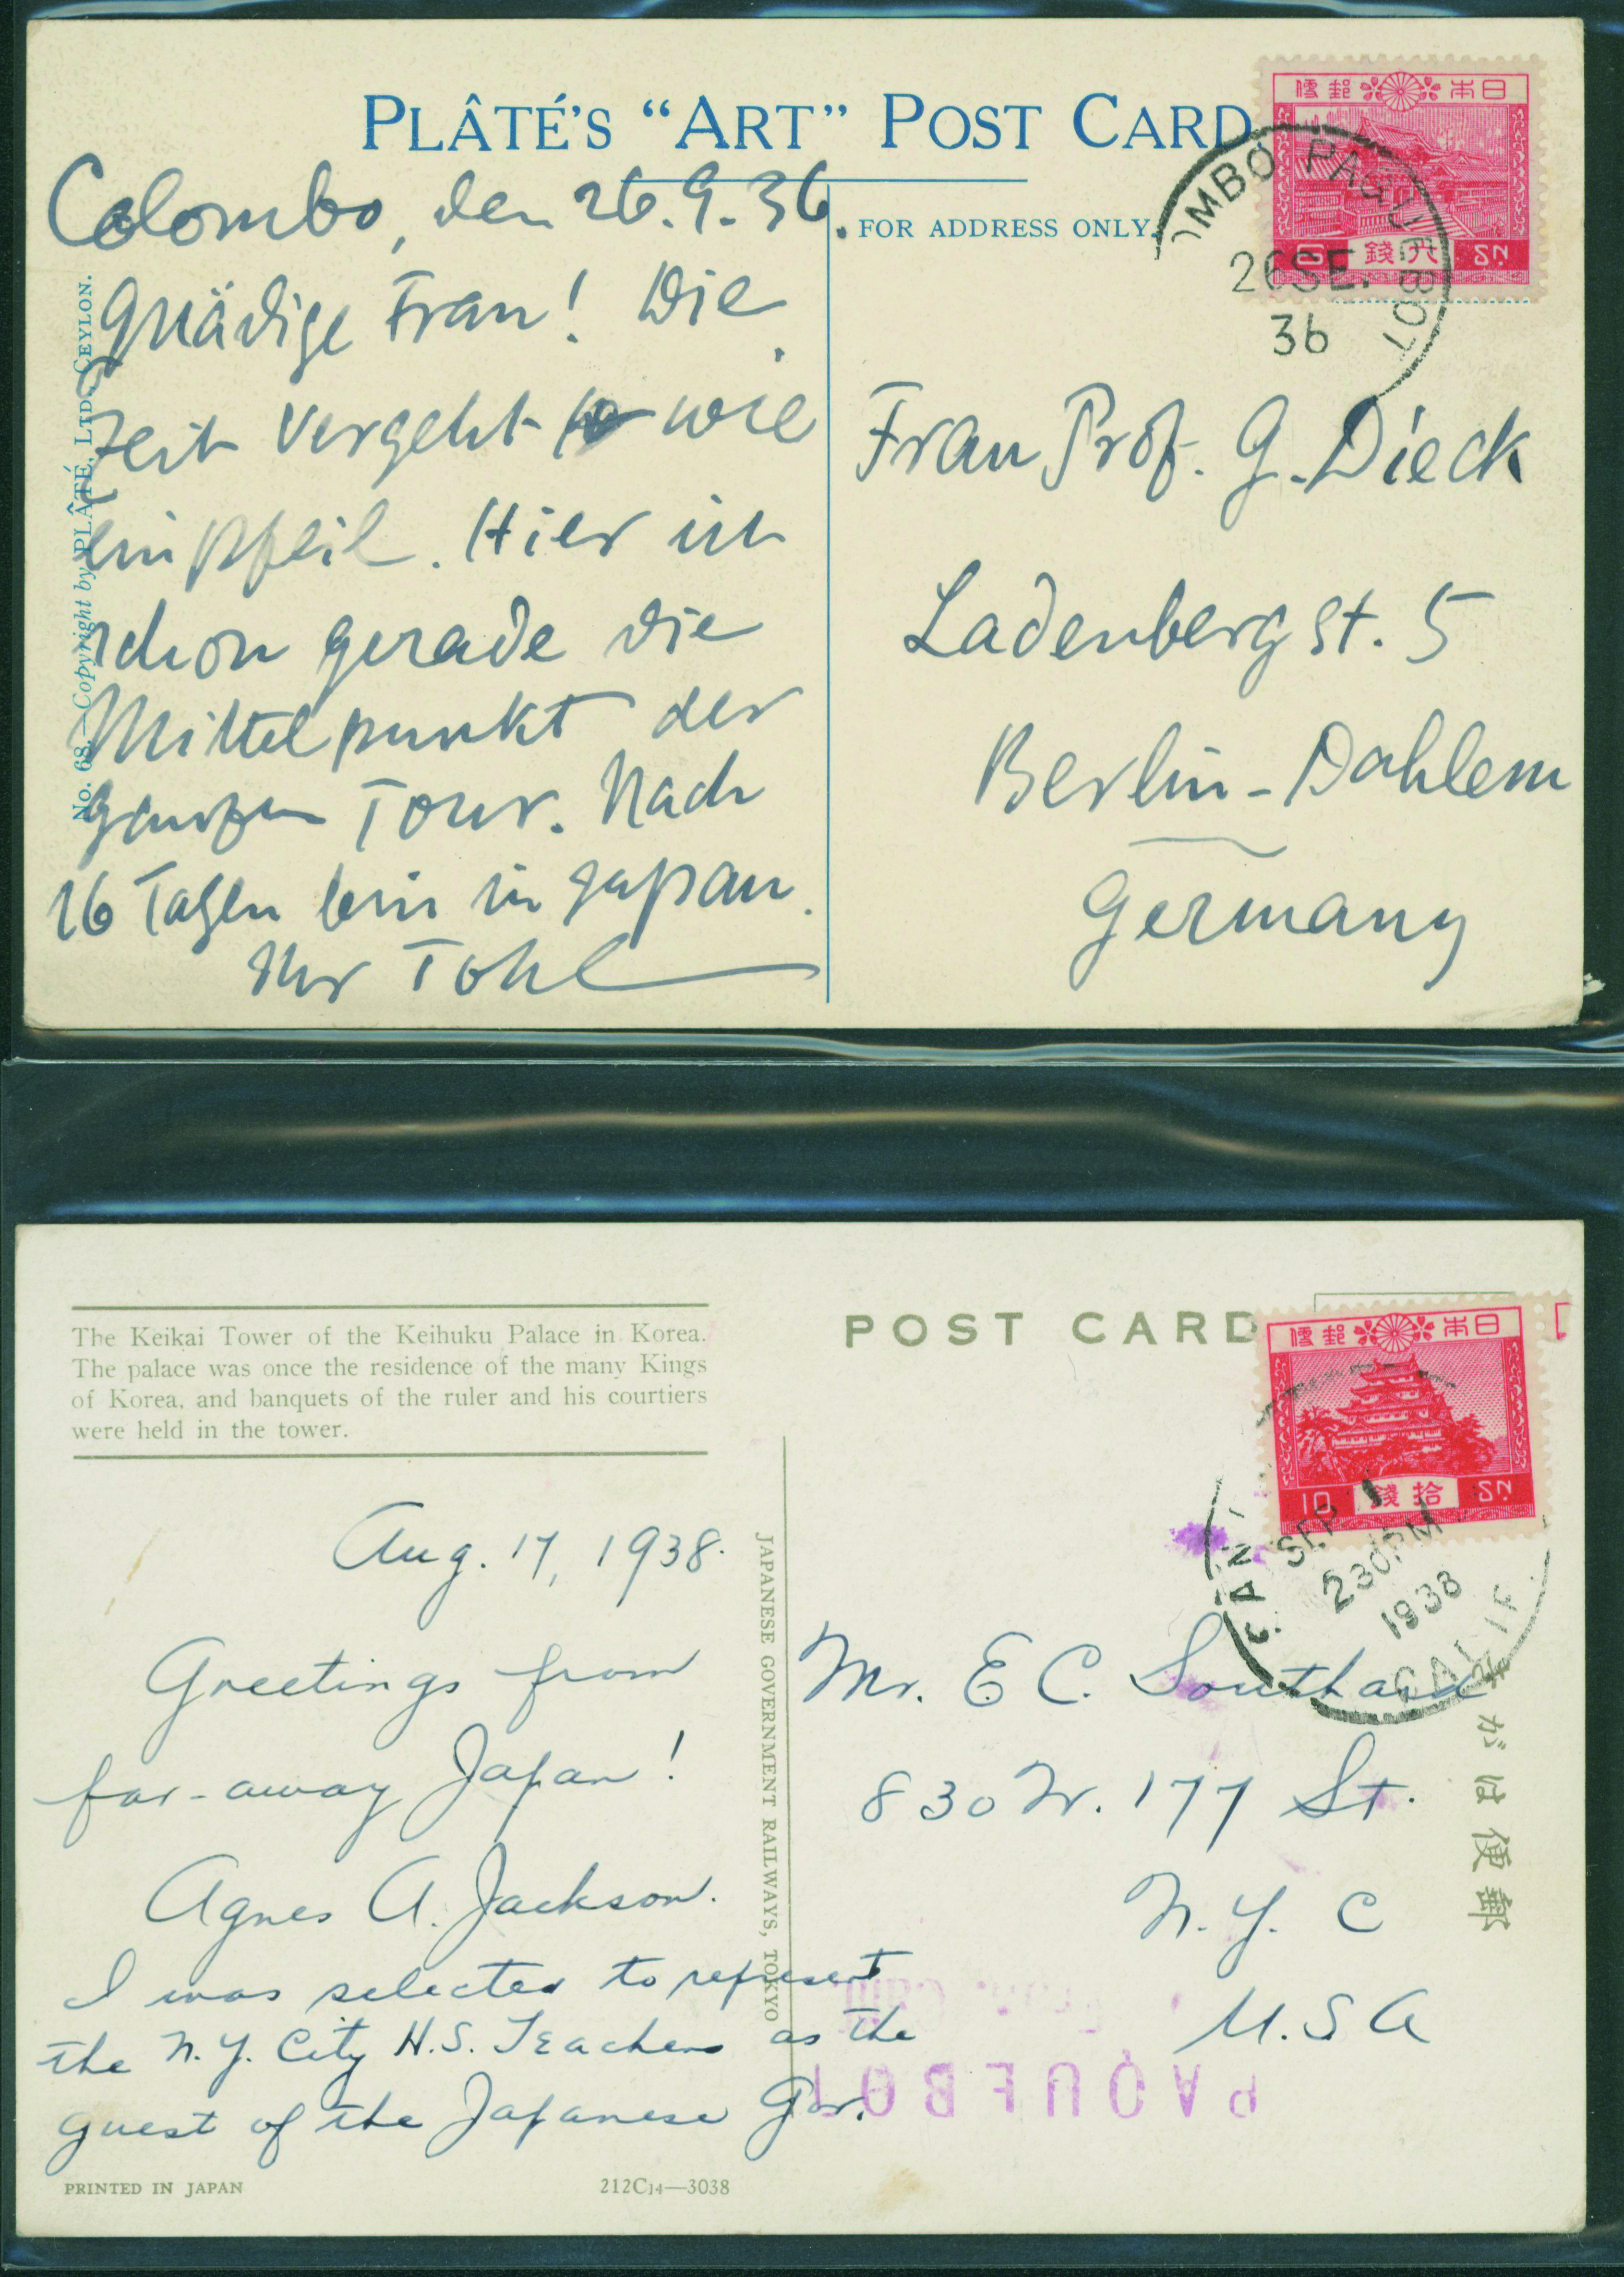 PLÂTÉ'S “ART” POST CARD
日本郵便
6 六錢 SN
OMBO PAQUEBOT
26 SE.
36
FOR ADDRESS ONLY.
No. 68.—Copyright by PLÂTÉ, LTD., CEYLON.
Colombo, den 26.9.36.
Gnädige Frau! Die
Zeit vergeht wie
ein Pfeil. Hier ist
schon gerade die
Mittelpunkt der
ganzen Tour. Nach
16 Tagen bin in Japan.
Ihr Tohl
Frau Prof. G. Dieck
Ladenbergst. 5
Berlin-Dahlem
Germany
The Keikai Tower of the Keihuku Palace in Korea.
The palace was once the residence of the many Kings
of Korea, and banquets of the ruler and his courtiers
were held in the tower.
POST CARD
日本郵便
10 拾錢 SN
SEP 1
230PM
1938
CALIF.
Aug. 17, 1938.
Greetings from
far-away Japan!
Agnes A. Jackson.
I was selected to represent
the N.Y. City H.S. Teachers as the
guest of the Japanese Gov.
JAPANESE GOVERNMENT RAILWAYS, TOKYO
Mr. E C. Southard
830 W. 177 St.
N.Y. C
U.S A
郵便はがき
PAQUEBOT
PRINTED IN JAPAN
212C14—3038